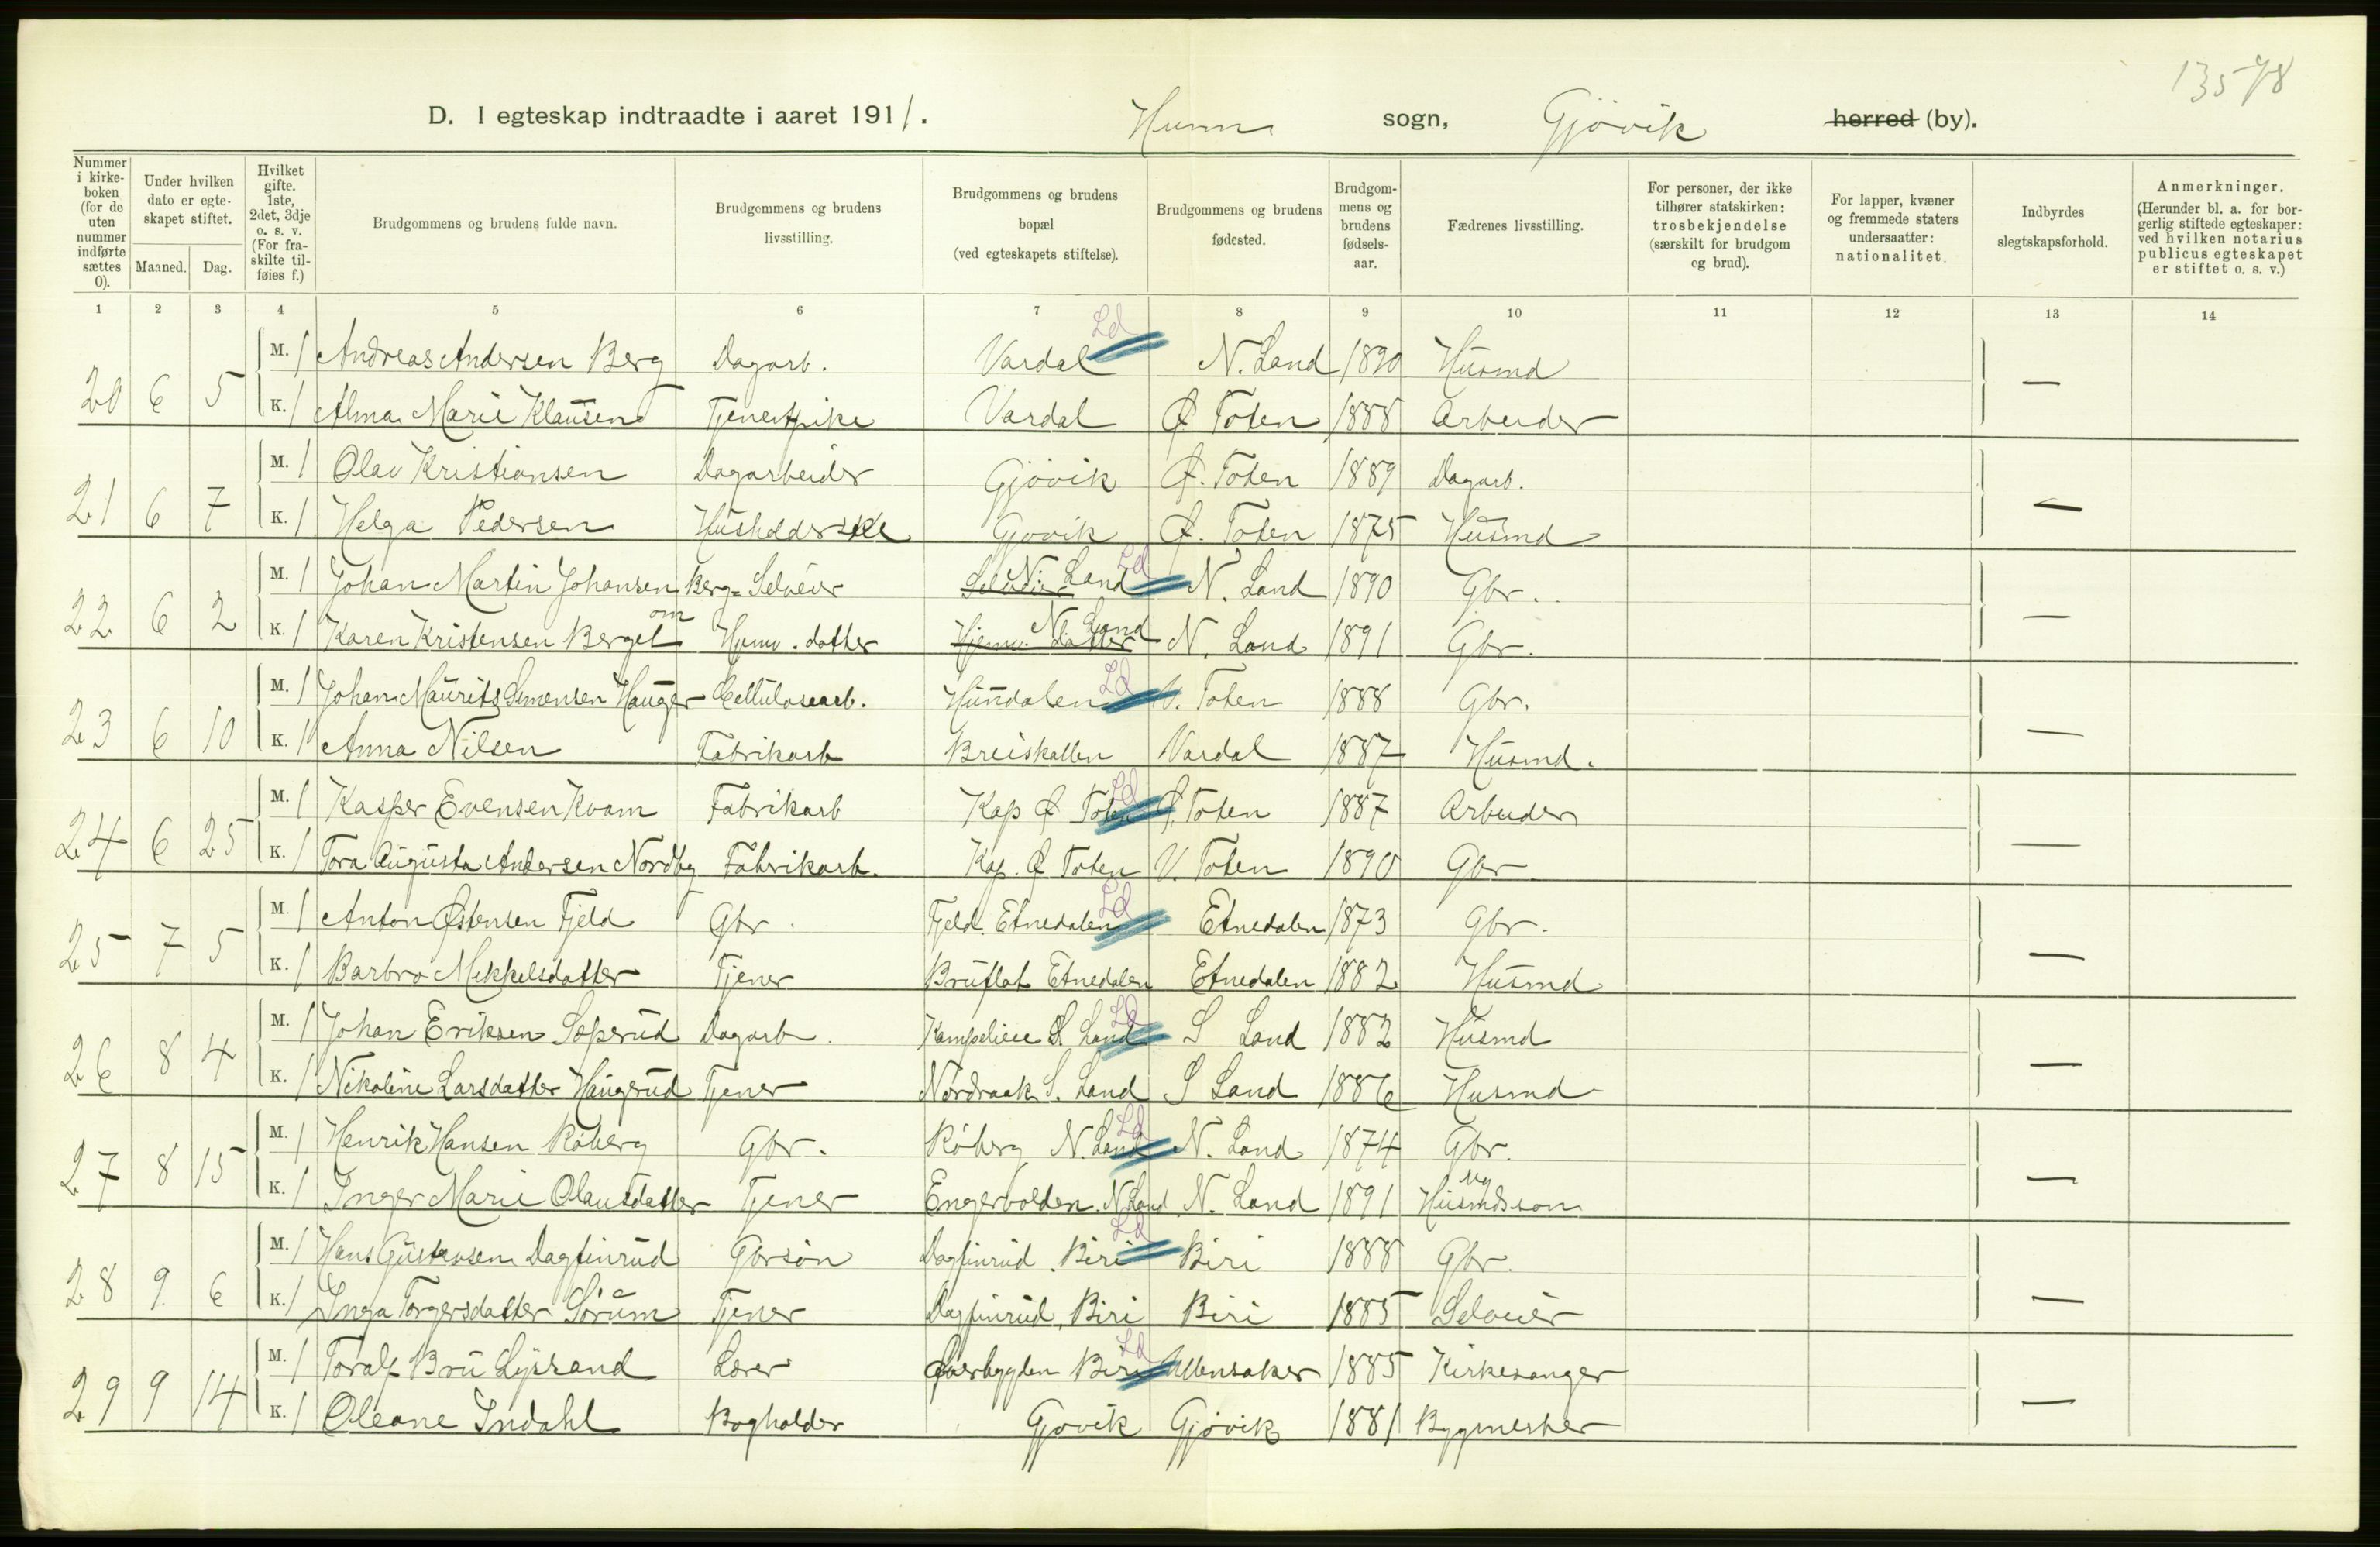 13578
D. I egteskap indtraadte i aaret 1911. Hunn sogn, Gjövik herred (by).
Nummer i kirkeboken (for de uten nummer indførte sættes 0).
Under hvilken dato er egteskapet stiftet.
Maaned. Dag.
Hvilket gifte. 1ste, 2det, 3dje o. s. v. (For fraskilte tilføies f.)
Brudgommens og brudens fulde navn.
Brudgommens og brudens livsstilling.
Brudgommens og brudens bopæl (ved egteskapets stiftelse).
Brudgommens og brudens fødested.
Brudgommens og brudens fødselsaar.
Fædrenes livsstilling.
For personer, der ikke tilhører statskirken: trosbekjendelse (særskilt for brudgom og brud).
For lapper, kvæner og fremmede staters undersaatter: nationalitet.
Indbyrdes slegtskapsforhold.
Anmerkninger. (Herunder bl. a. for borgerlig stiftede egteskaper: ved hvilken notarius publicus egteskapet er stiftet o. s. v.)
1 2 3 4 5 6 7 8 9 10 11 12 13 14
M. 1 Andreas Andersen Berg Dagarb. Vardal Ld N. Land 1890 Husmd
20 6 5 K. 1 Alma Marie Klausen Tjenestpike Vardal Ø Toten 1888 Arbeider —
M. 1 Olav Kristiansen Dagarbeider Gjövik Ø. Toten 1889 Dagarb.
21 6 7 K. 1 Helga Pedersen Husholderske Gjovik Ø. Toten 1875 Husmd —
M. 1 Johan Martin Johansen Berg Selveier N. Land Ld N. Land 1890 Gbr.
22 6 2 K. 1 Karen Kristensen Bergetom Hjemv. datter Hjemv. datter N Land N. Land 1891 Gbr. —
M. 1 Johan Maurits Simensen Hauger Cellulosearb. Hunndalen Ld V. Toten 1888 Gbr.
23 6 10 K. 1 Anna Nilsen Fabrikarb Breiskallen Vardal 1887 Husmd. —
M. 1 Kasper Evensen Kvam Fabrikarb Kap Ø Toten Ld Ø. Toten 1887 Arbeider
24 6 25 K. 1 Tora Augusta Andersen Nordby Fabrikarb. Kap. Ø Toten V. Toten 1890 Gbr —
M. 1 Anton Østensen Fjeld Gbr. Fjeld. Etnedalen Ld Etnedalen 1873 Gbr.
25 7 5 K. 1 Barbro Mikkelsdatter Tjener Bruflat Etnedalen Etnedalen 1882 Husmd —
M. 1 Johan Eriksen Soperud Dagarb. S Land Ld S Land 1882 Husmd
26 8 4 K. 1 Nikoline Larsdatter Haugerud Tjener Nordraak S. Land S Land 1886 Husmd —
M. 1 Henrik Hansen Röberg Gbr. Röberg N. Land Ld N. Land 1874 Gbr.
27 8 15 K. 1 Inger Marie Olausdatter Tjener Engervolden. N Land N. Land 1891 Husmdsson —
M. 1 Hans Gustavsen Dagfinrud Gbrsön Dagfinrud. Biri Ld Biri 1888 Gbr.
28 9 6 K. 1 Inga Torgersdatter Sörum Tjener Dagfinrud, Biri Biri 1885 Selveier —
M. 1 Toralf Bru Lysrand Lærer Øverbygden Biri Ld Ullensaker 1885 Kirkesanger
29 9 14 K. 1 Oleane Indahl Bogholder Gjovik Gjövik 1881 Bygmester —